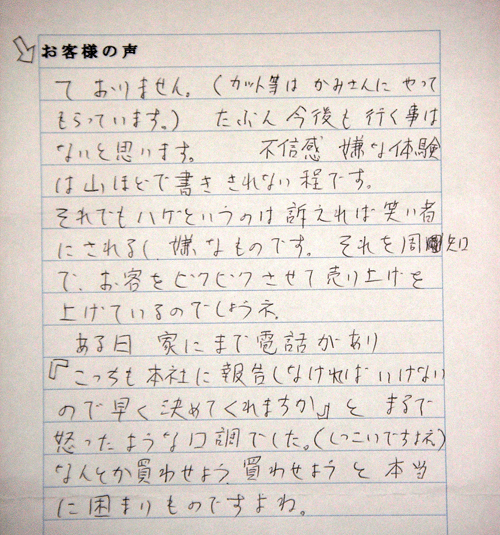 お客様の声
ておりません。(カット等は かみさんに やって
もらっています。) たぶん 今後も 行く事は
ないと思います。 不信感 嫌な体験
は山ほどで書きされない程です。
それでもハゲというのは訴えれば笑い者
にされるし、嫌なものです。それを周知
で、お客をビクビクさせて売り上げを
上げているのでしょうネ。
ある日 家にまで電話があり
『こっちも本社に報告しなければいけない
ので早く決めてくれますか』と まるで
怒ったような口調でした。(しつこいですよネ)
なんとか買わせよう、買わせようと本当
に困まりものですよね。